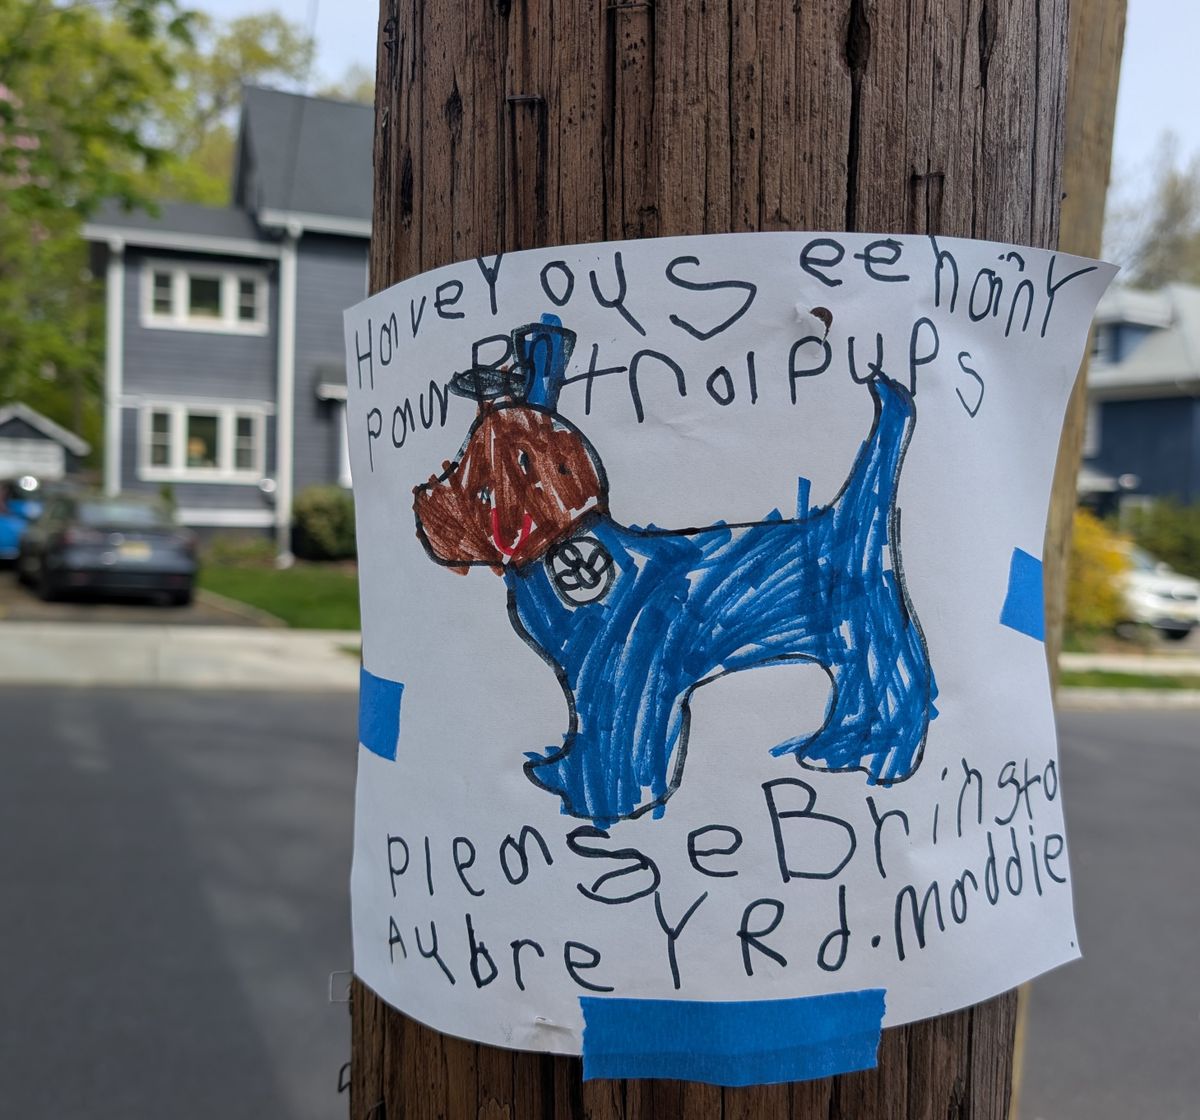 Have You Seen any
paw Patrol pups
please Bring to
Aubrey Rd. Maddie